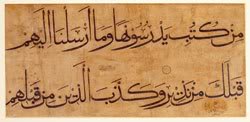 من كتب يدرسونها وما أرسلنا إليهم
قبلك من نذير وكذب الذين من قبلهم